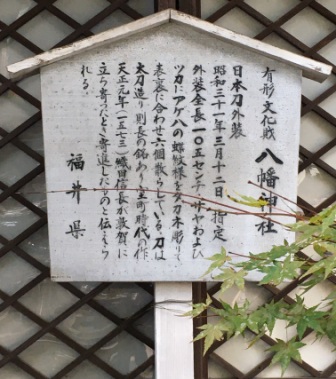 有形文化財 八幡神社
日本刀外装
昭和三十一年三月十二日指定
外装全長一〇五センチ、サヤおよび
ツカにアゲハの蝶散様を交刀木彫りで
表裏に合わせ六個散らしている。刀は
太刀造り則長の銘あり室町時代の作
天正元年(一五七三)織田信長が敦賀に
立ち寄ったとき寄進したものと伝えら
れる。
福井県